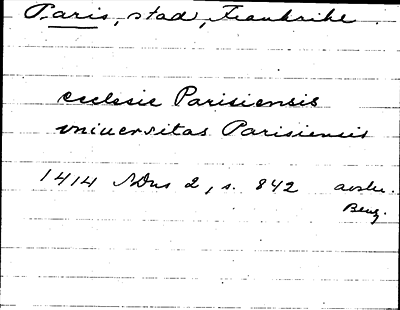 Paris, stad, Frankrike
ecclesie Parisiensis
vniuersitas Parisiensis
1414 SDns 2, s. 842 avskr.
Beng.